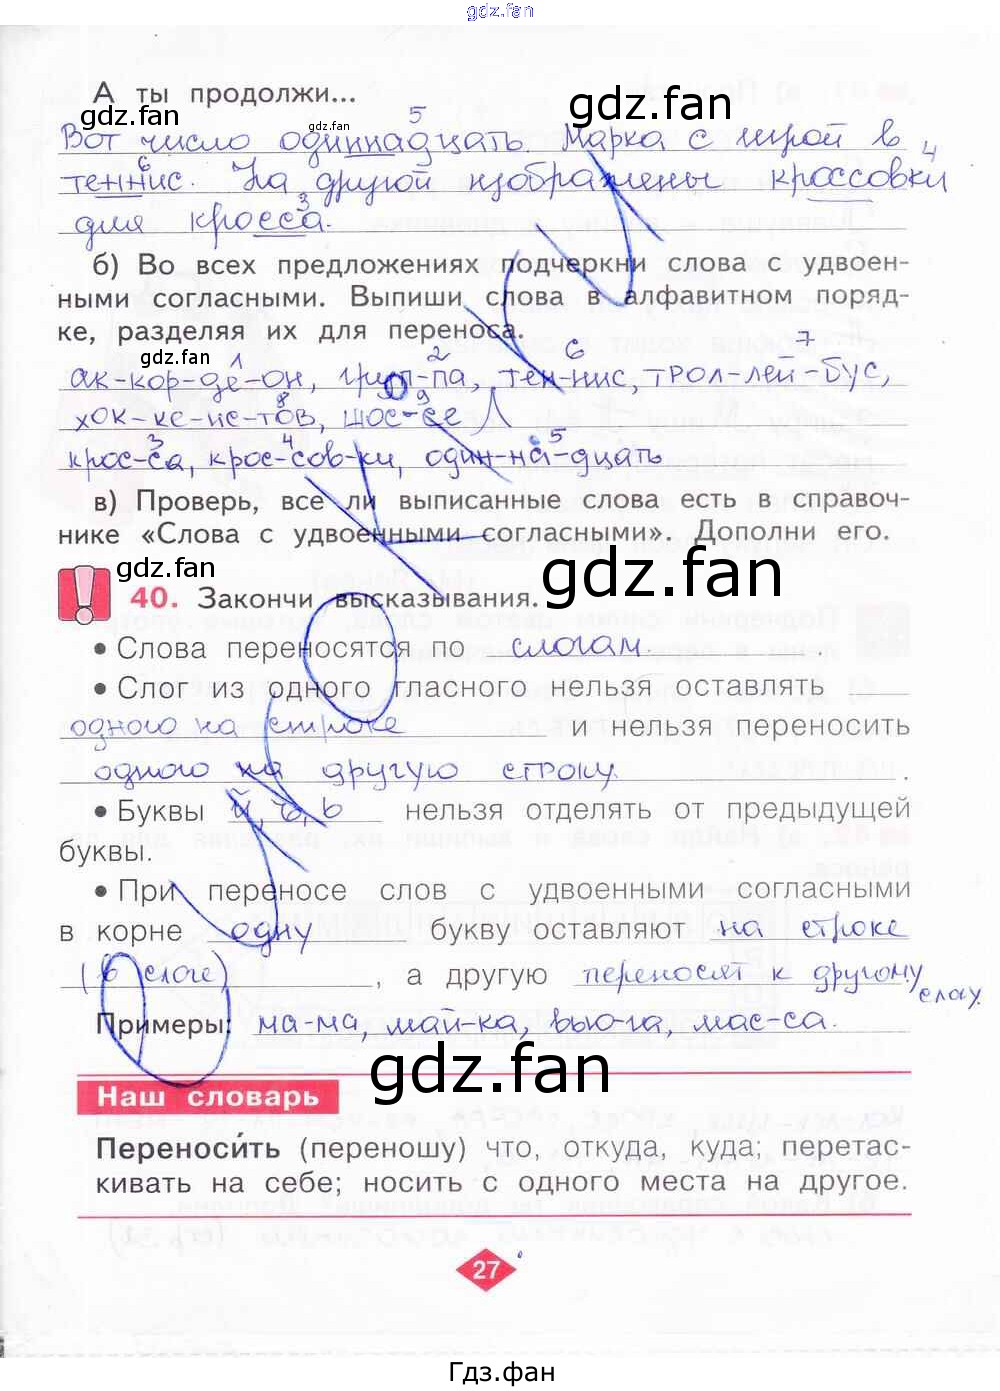 gdz.fan
А ты продолжи...
gdz.fan gdz.fan gdz.fan
5
Вот число одиннадцать. Марка с игрой в
6 4
теннис. На другой изображены кроссовки
3
для кросса.
б) Во всех предложениях подчеркни слова с удвоен-
ными согласными. Выпиши слова в алфавитном поряд-
ке, разделяя их для переноса.
gdz.fan
1 2 6 7
ак-кор-де-он, грип-па, тен-нис, трол-лей-бус,
8 9
хок-ке-ис-тов, шос-се
3 4 5
крос-са, крос-сов-ки, один-на-дцать
в) Проверь, все ли выписанные слова есть в справоч-
нике «Слова с удвоенными согласными». Дополни его.
gdz.fan gdz.fan
40. Закончи высказывания.
• Слова переносятся по слогам.
• Слог из одного гласного нельзя оставлять
одного на строке и нельзя переносить
одного на другую строку.
• Буквы й, ъ, ь нельзя отделять от предыдущей
буквы.
• При переносе слов с удвоенными согласными
в корне одну букву оставляют на строке
(в слоге), а другую переносят к другому
слогу.
Примеры: ма-ма, май-ка, вью-га, мас-са.
gdz.fan
Наш словарь
Переноси́ть (переношу) что, откуда, куда; перетас-
кивать на себе; носить с одного места на другое.
27
Гдз.фан